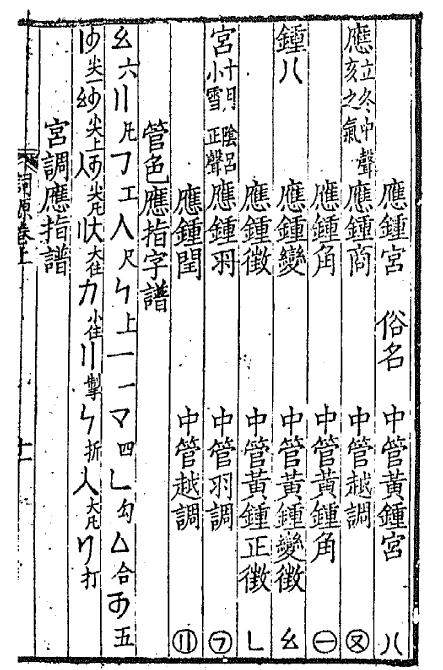 應鍾宮 俗名 中管黃鍾宮 八
應 立冬中聲 亥之氣 應鍾商 中管越調 ㊇
應鍾角 中管黃鍾角 ㊀
鍾八 應鍾變 中管黃鍾變徵 幺
應鍾徵 中管黃鍾正徵 乚
宮 十月陰呂 小雪正聲 應鍾羽 中管羽調 ㋷
應鍾閏 中管越調 ⑪
管色應指字譜
幺六 〢凡 フ工 人尺 ㄣ上 一一 マ四 乚勾 ム合 五
尖一 尖上 尖凡 大住 力小住 〢掣 ㄣ折 人大凡 リ打
宮調應指譜
詞源卷上
十一